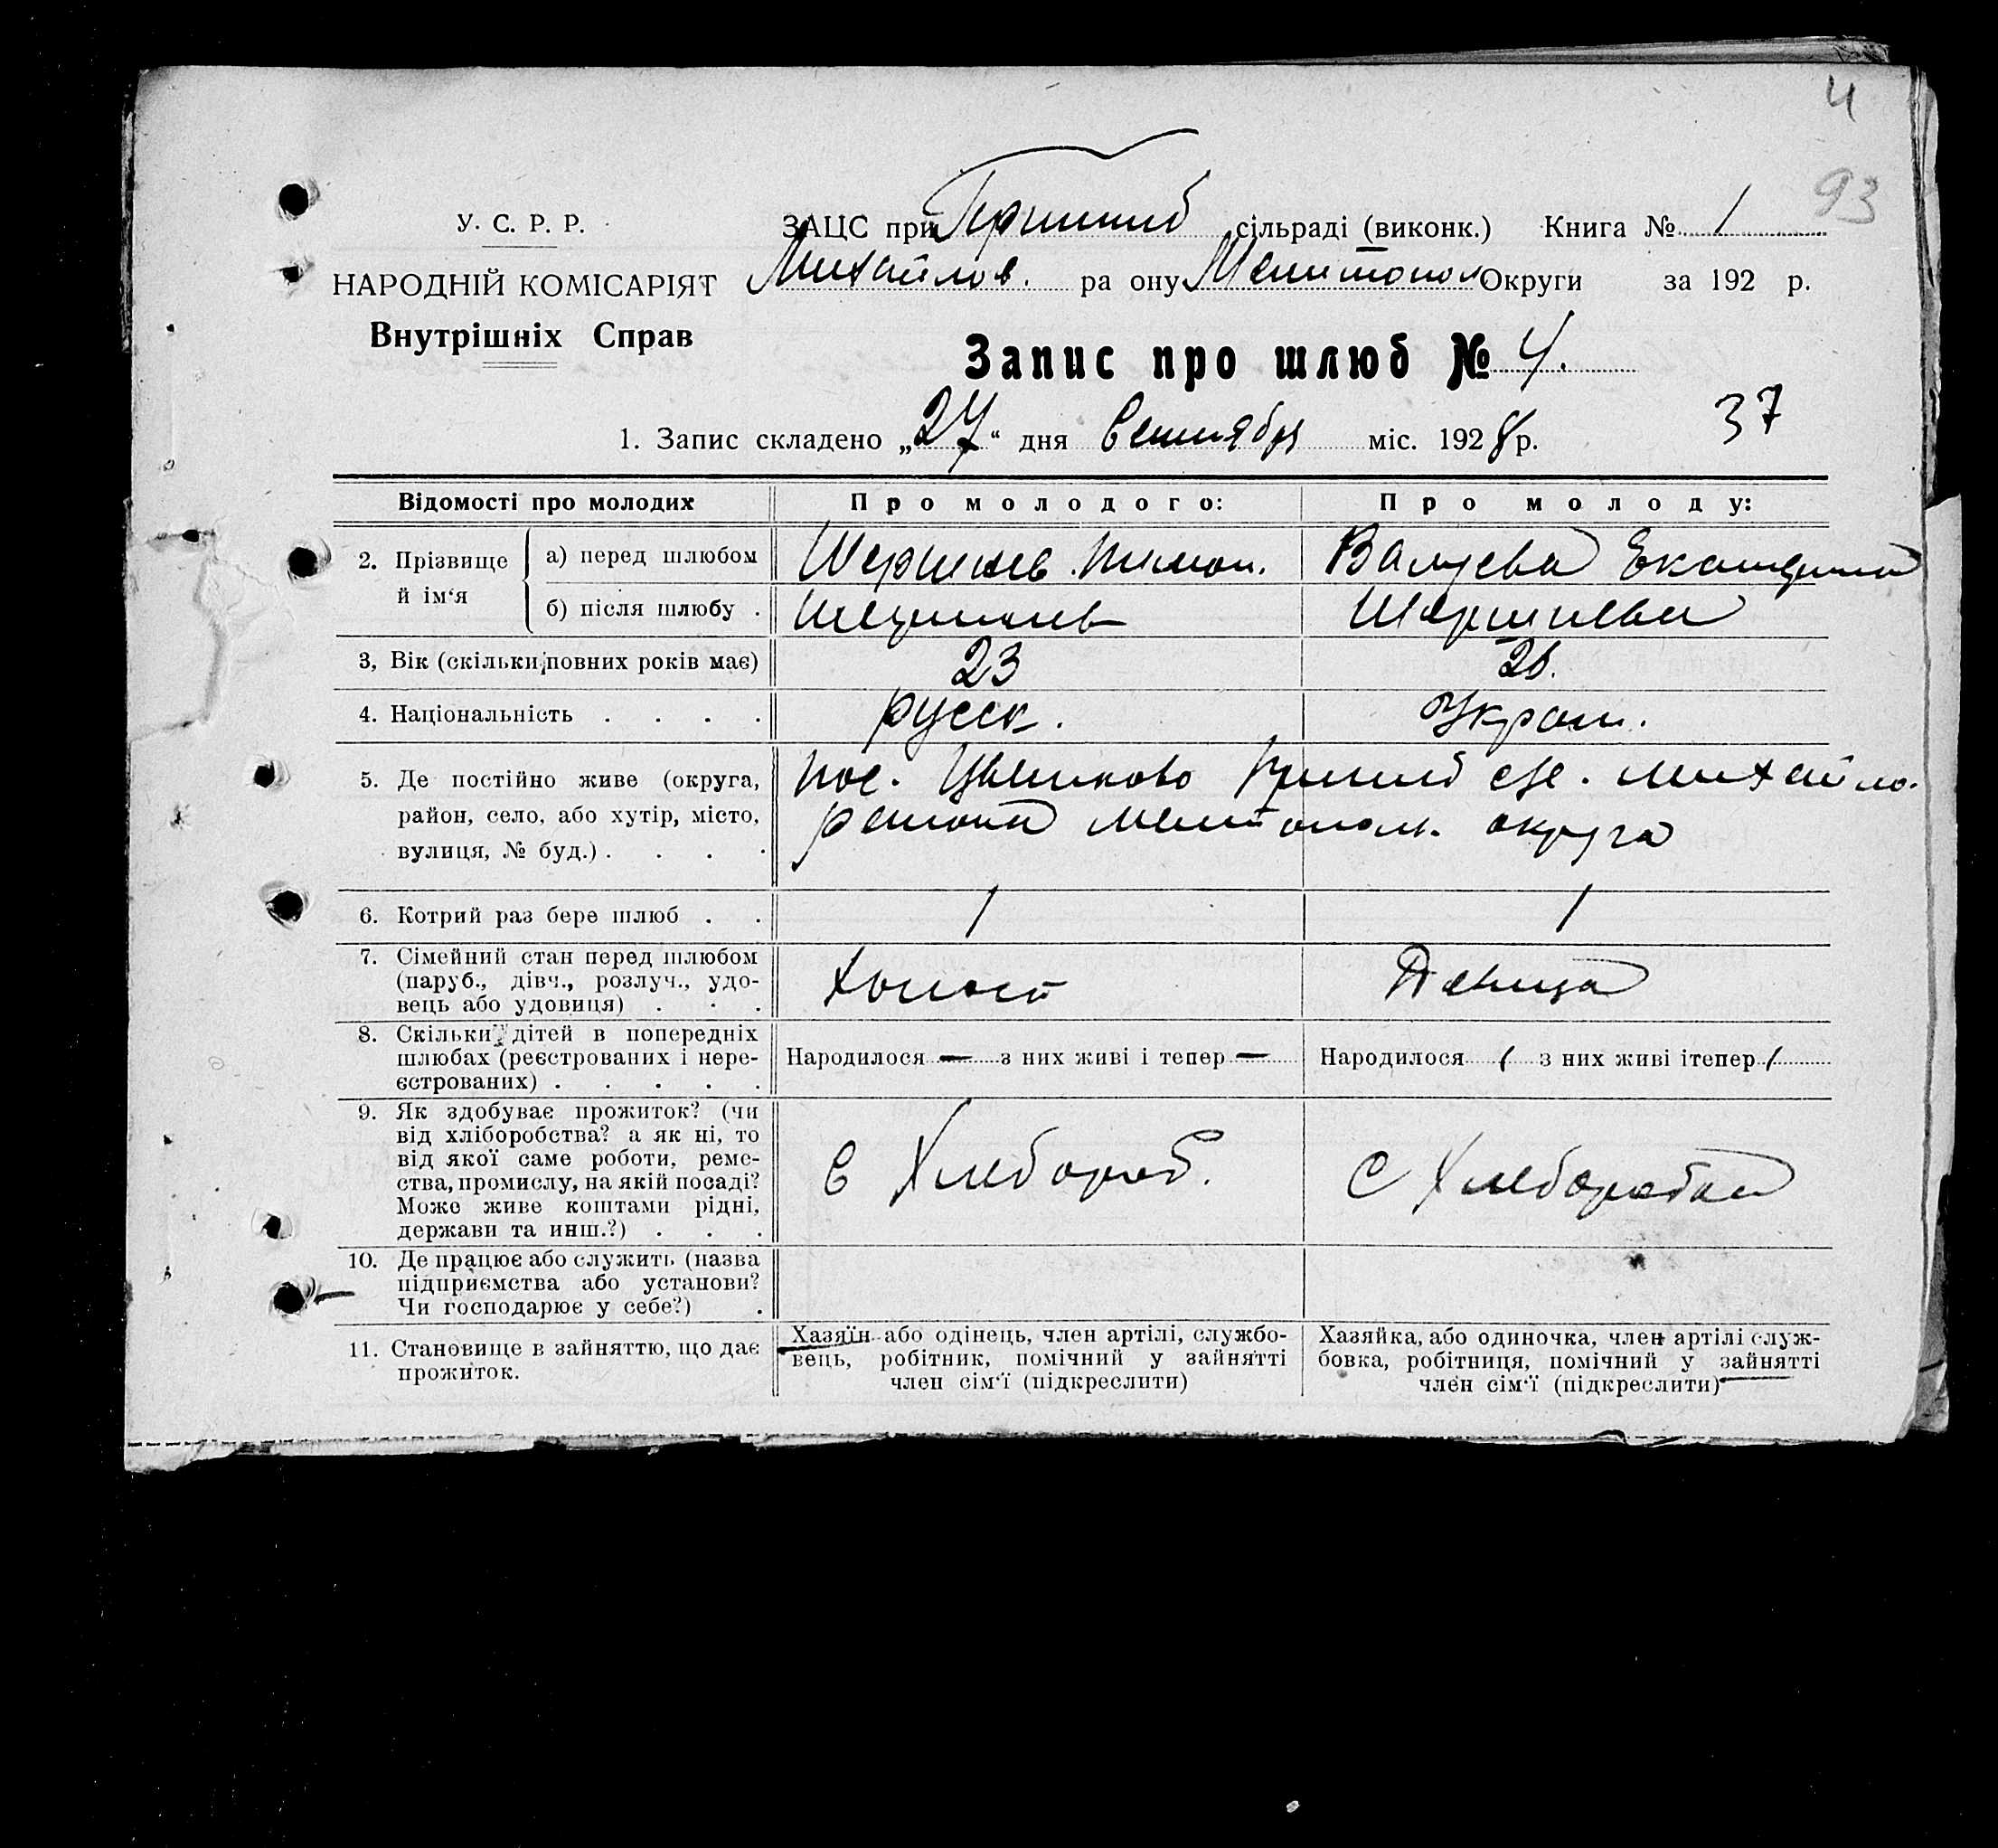 4
93
У. С. Р. Р.
НАРОДНІЙ КОМІСАРІЯТ
Внутрішніх Справ
ЗАЦС при сільраді (виконк.) Книга № 1
Михайлов. ра ону Мелитопол Округи за 192 р.
Запис про шлюб № 4.
1. Запис складено „27“ дня Сентября міс. 1928 р.
37
Відомості про молодих Про молодого: Про молоду:
2. Прізвище й ім‘я
а) перед шлюбом Екатерина
б) після шлюбу .
3, Вік (скільки повних років має) 23
4. Національність . . . . русск. Украин.
5. Де постійно живе (округа,
район, село, або хутір, місто,
вулиця, № буд.) . . . .
пос. с/с. Михайло.
района Мелитополь. округа
6. Котрий раз бере шлюб . . 1 1
7. Сімейний стан перед шлюбом
(паруб., дівч., розлуч., удо-
вець або удовиця) . . .
Холост Девица
8. Скільки дітей в попередніх
шлюбах (реєстрованих і нере-
єстрованих) . . . . .
Народилося — з них живі і тепер —
Народилося 1 з них живі ітепер 1
9. Як здобуває прожиток? (чи
від хліборобства? а як ні, то
від якої саме роботи, реме-
ства, промислу, на якій посаді?
Може живе коштами рідні,
держави та инш.?) . . .
С Хлебороб. С Хлеборобства
10. Де працює або служить (назва
підприємства або установи?
Чи господарює у себе?) .
11. Становище в зайняттю, що дає
прожиток.
Хазяїн або одінець, член артілі, службо-
вець, робітник, помічний у зайнятті
член сім‘ї (підкреслити)
Хазяйка, або одиночка, член артілі служ-
бовка, робітниця, помічний у зайнятті
член сім‘ї (підкреслити)